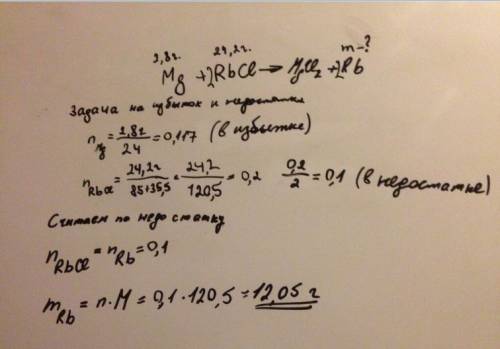 2,8г. 24,2г. m-?
Mg + 2RbCl → MgCl₂ + 2Rb
Задача на избыток и недостаток
n Mg = 2,8г / 24 = 0,117 (в избытке)
n RbCl = 24,2г / 85+35,5 = 24,2 / 120,5 = 0,2 0,2 / 2 = 0,1 (в недостатке)
Считаем по недостатку
n RbCl = n Rb = 0,1
m Rb = n · M = 0,1 · 120,5 = 12,05 г